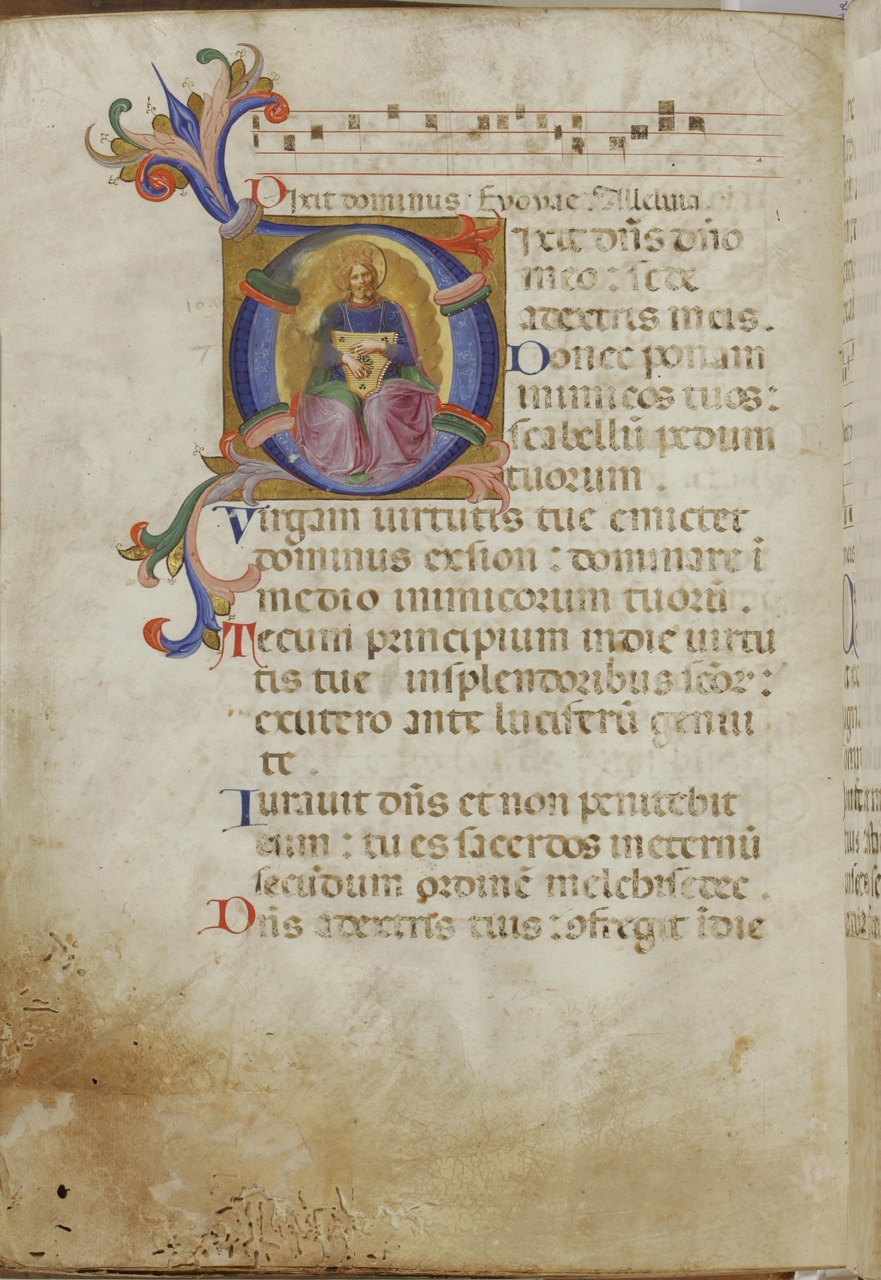 Dixit dominus. Evovae. Alleluia.
Dixit dñs dño
meo: sede
adextris meis.
Donec ponam
inimicos tuos:
scabellũ pedum
tuorum.
Virgam uirtutis tue emittet
dominus exsion: dominare ĩ
medio inimicorum tuorũ.
Tecum principium indie uirtu
tis tue insplendoribus scõr:
exutero ante luciferũ genui
te.
Iurauit dñs et non penitebit
eum: tu es sacerdos ineternũ
secũdum ordinẽ melchisedec.
Dñs adextris tuis: ꝯfregit ĩdie